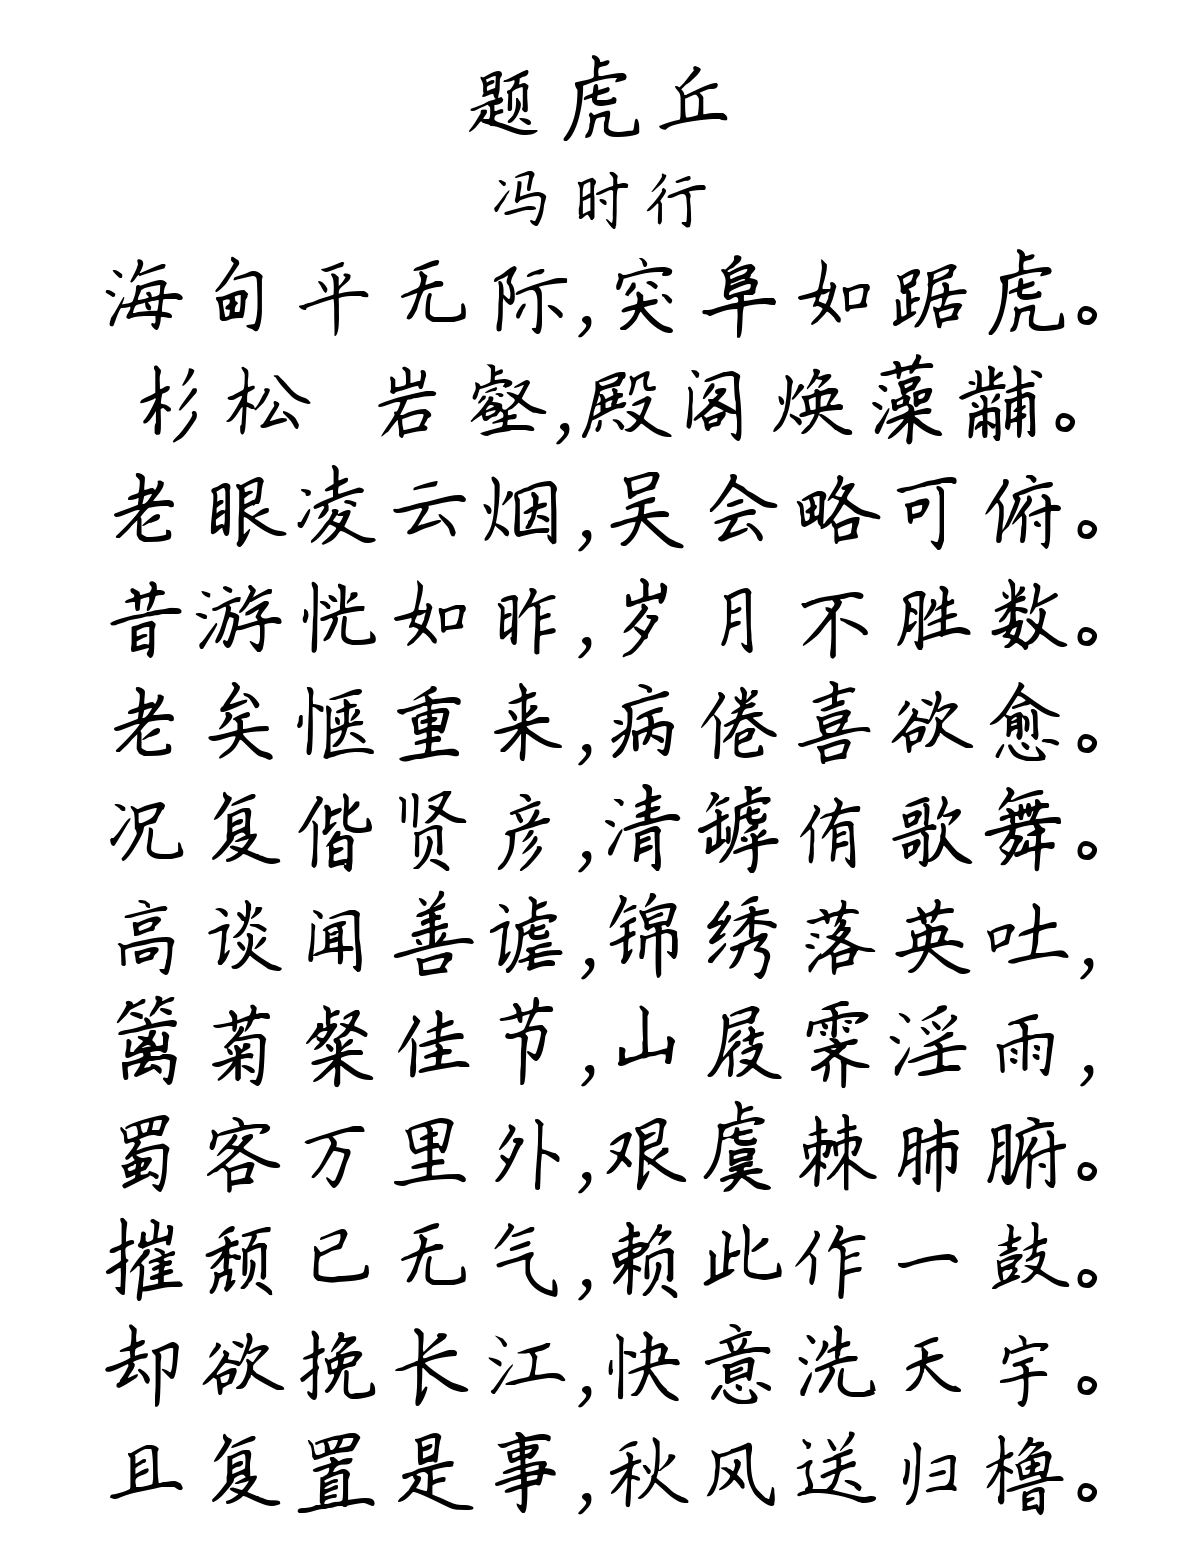 题虎丘
冯时行
海甸平无际,突阜如踞虎。
杉松 岩壑,殿阁焕藻黼。
老眼凌云烟,吴会略可俯。
昔游恍如昨,岁月不胜数。
老矣惬重来,病倦喜欲愈。
况复偕贤彦,清罅侑歌舞。
高谈闻善谑,锦绣落英吐,
篱菊粲佳节,山屐霁淫雨,
蜀客万里外,艰虞棘肺腑。
摧颓已无气,赖此作一鼓。
却欲挽长江,快意洗天宇。
且复置是事,秋风送归橹。